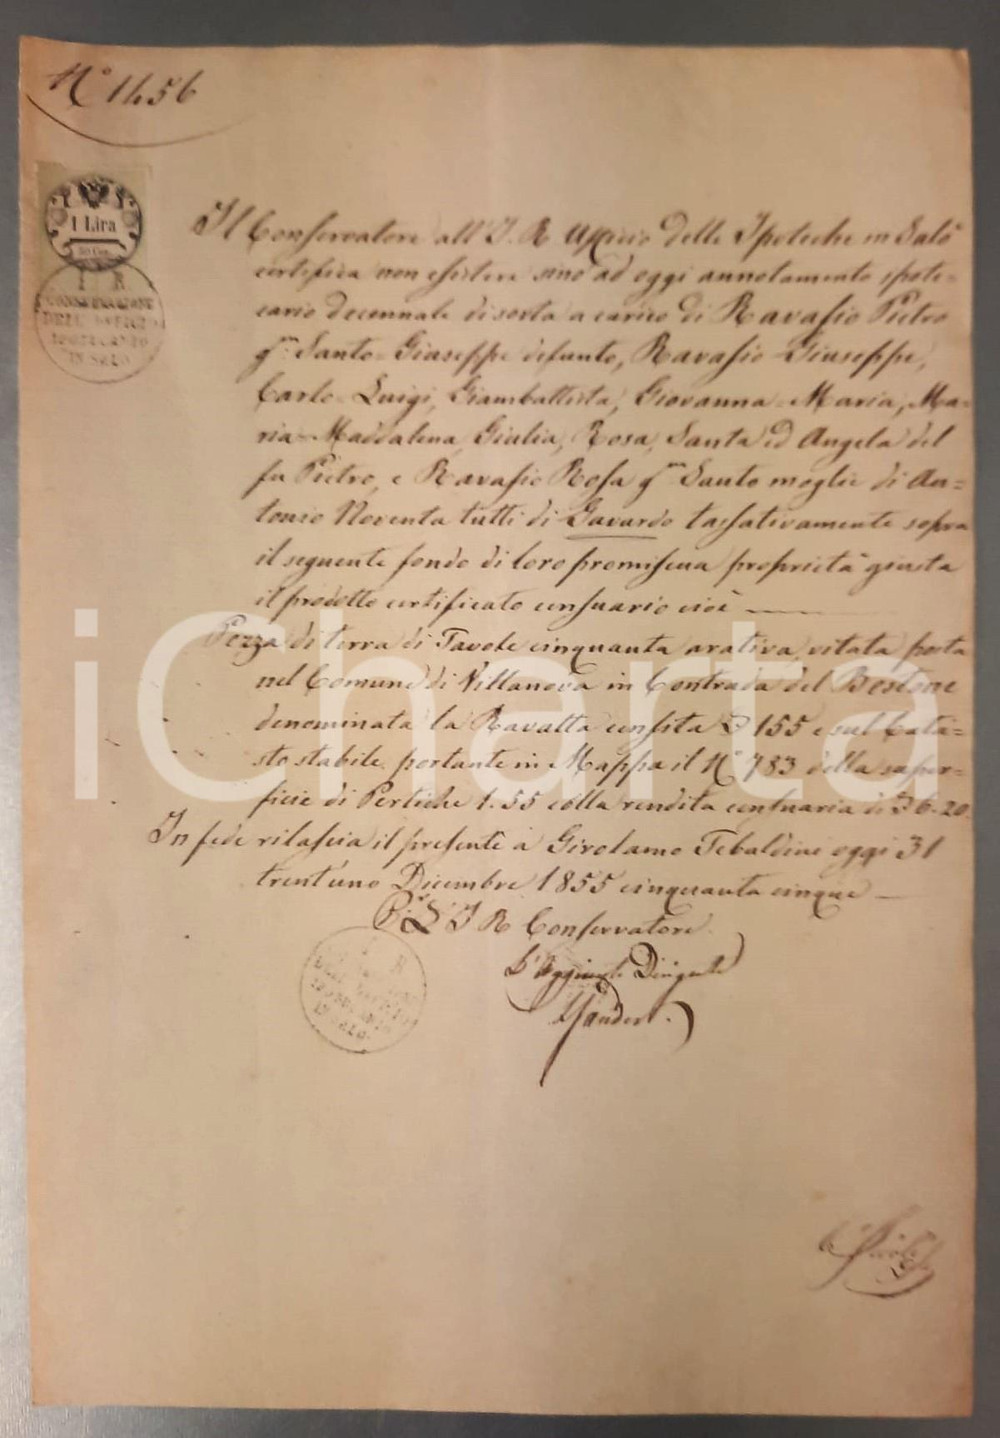 N.° 1456
1 Lira
I R
CONSERVAZIONE
DELL'UFFICIO
IPOTECARIO
IN SALÒ
Il Conservatore all'I. R. Ufficio delle Ipoteche in Salò
certifica non esistere sino ad oggi annotamento ipote=
cario decennale di sorta a carico di Ravasio Pietro
q.m Santo-Giuseppe defunto, Ravasio Giuseppe,
Carlo-Luigi, Giambattista, Giovanna-Maria, Ma-
ria-Maddalena, Giulia, Rosa, Santa ed Angela del
fu Pietro, e Ravasio Rosa q.m Santo moglie di An=
tonio Noventa tutti di Gavardo tassativamente sopra
il seguente fondo di loro promiscua proprietà giusta
il prodotto certificato censuario cioè
Pezza di terra di Tavole cinquanta arativa, vitata posta
nel Comune di Villanova in Contrada del Bostone
denominata la Ravatta censita 155 e sul Cata=
sto stabile portante in Mappa il N.° 783 della super=
ficie di Pertiche 1.55 colla rendita censuaria di 6.20
In fede rilascia il presente a Girolamo Tebaldini oggi 31
trent'uno Dicembre 1855 cinquanta cinque
L'I R Conservatore
L'Aggiunto Dirigente
I R
DELL'UFFICIO
IPOTECARIO
IN SALÒ
iCharta